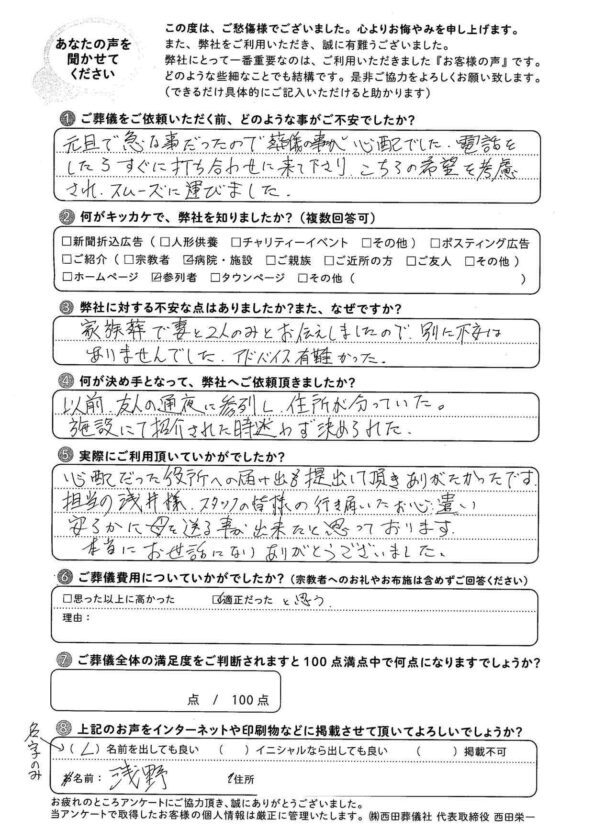 あなたの声を
聞かせて
ください
この度は、ご愁傷様でございました。心よりお悔やみを申し上げます。
また、弊社をご利用いただき、誠に有難うございました。
弊社にとって一番重要なのは、ご利用いただきました『お客様の声』です。
どのような些細なことでも結構です。是非ご協力をよろしくお願い致します。
(できるだけ具体的にご記入いただけると助かります)
① ご葬儀をご依頼いただく前、どのような事がご不安でしたか?
元旦で急な事だったので葬儀の事が心配でした。電話を
したらすぐに打ち合わせに来て下さり、こちらの希望を考慮
され、スムーズに運びました。
② 何がキッカケで、弊社を知りましたか?(複数回答可)
□新聞折込広告(□人形供養 □チャリティーイベント □その他) □ポスティング広告
□ご紹介(□宗教者 ☑病院・施設 □ご親族 □ご近所の方 □ご友人 □その他)
□ホームページ ☑参列者 □タウンページ □その他( )
③ 弊社に対する不安な点はありましたか?また、なぜですか?
家族葬で妻と2人のみとお伝えしましたので、別に不安は
ありませんでした。アドバイス有難かった。
④ 何が決め手となって、弊社へご依頼頂きましたか?
以前、友人の通夜に参列し、住所が分っていた。
施設にて紹介された時迷わず決められた。
⑤ 実際にご利用頂いていかがでしたか?
心配だった役所への届け出も提出して頂きありがたかったです。
担当の浅井様、スタッフの皆様の行き届いたお心遣い
安らかに母を送る事が出来たと思っております。
本当にお世話になりありがとうございました。
⑥ ご葬儀費用についていかがでしたか?(宗教者へのお礼やお布施は含めずご回答ください)
□思った以上に高かった ☑適正だった と思う。
理由:
⑦ ご葬儀全体の満足度をご判断されますと100点満点中で何点になりますでしょうか?
点 / 100点
⑧ 上記のお声をインターネットや印刷物などに掲載させて頂いてよろしいでしょうか?
名字のみ
(✓)名前を出しても良い ( )イニシャルなら出しても良い ( )掲載不可
お名前: 浅野 ご住所
お疲れのところアンケートにご協力頂き、誠にありがとうございました。
当アンケートで取得したお客様の個人情報は厳正に管理いたします。㈱西田葬儀社 代表取締役 西田栄一